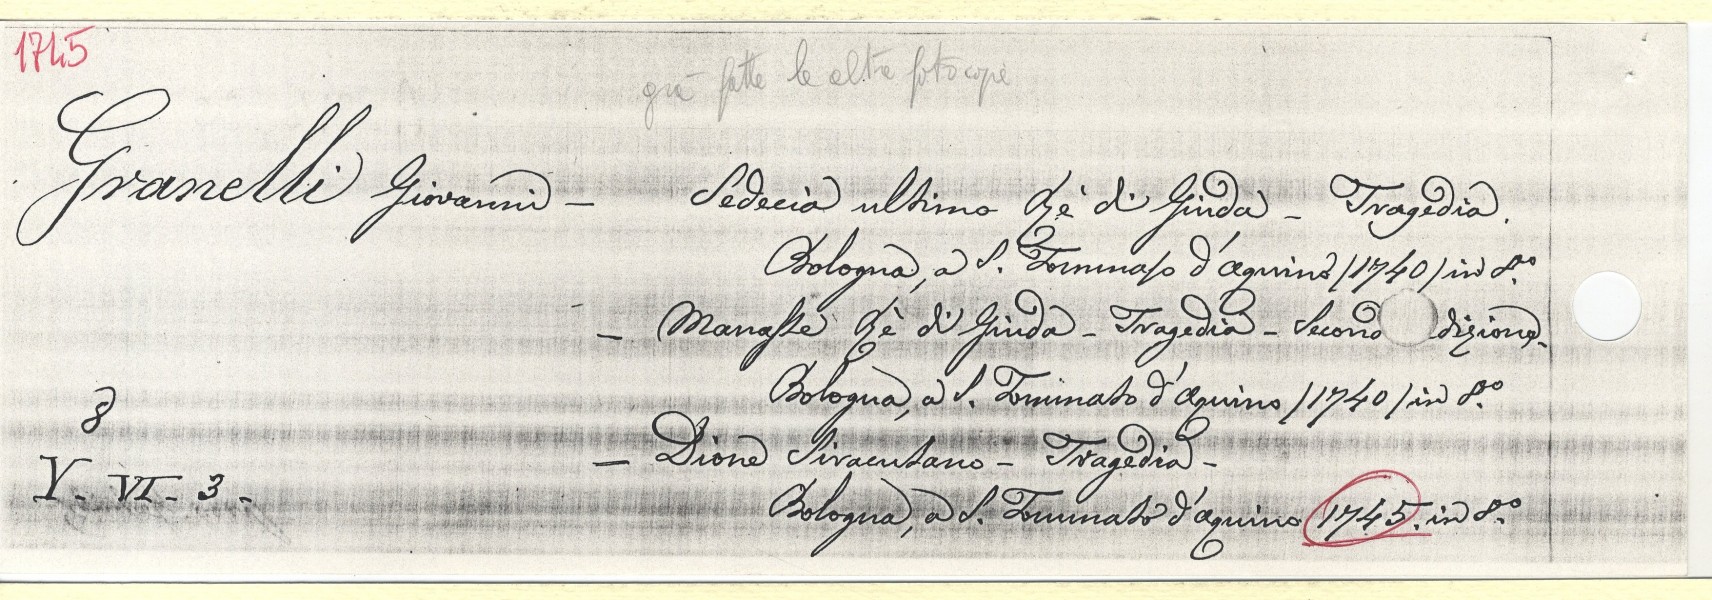 1745
già fatte le altre fotocopie
Granelli Giovanni - Sedecia ultimo Rè di Giuda - Tragedia.
Bologna, a S. Tommaso d'Aquino /1740/ in 8.º
- Manasse Rè di Giuda - Tragedia - Second dizione -
Bologna, a S. Tommaso d'Aquino /1740/ in 8.º
3
- Dione Siracusano - Tragedia -
V. VI - 3 -
Bologna, a S. Tommaso d'Aquino 1745. in 8.º